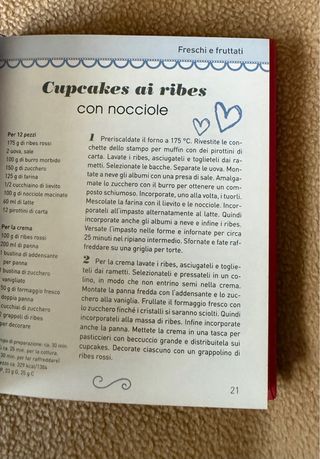 Freschi e fruttati
Cupcakes ai ribes
con nocciole
Per 12 pezzi
175 g di ribes rossi
2 uova, sale
100 g di burro morbido
150 g di zucchero
125 g di farina
1/2 cucchiaino di lievito
100 g di nocciole macinate
60 ml di latte
12 pirottini di carta
Per la crema
100 g di ribes rossi
200 ml di panna
1 bustina di addensante
per panna
1 bustina di zucchero
vanigliato
50 g di formaggio fresco
doppia panna
zucchero di canna
grappoli di ribes
per decorare
Tempo di preparazione: ca. 30 min.
ca. 25 min. per la cottura,
30 min. per far raffreddare)
pezzo ca. 329 kcal/1384
P, 23 g G, 25 g C
1 Preriscaldate il forno a 175 °C. Rivestite le con-
chette dello stampo per muffin con dei pirottini di
carta. Lavate i ribes, asciugateli e toglieteli dai ra-
metti. Selezionate le bacche. Separate le uova. Mon-
tate a neve gli albumi con una presa di sale. Amalga-
mate lo zucchero con il burro per ottenere un com-
posto schiumoso. Incorporate, uno alla volta, i tuorli.
Mescolate la farina con il lievito e le nocciole. Incor-
porateli all'impasto alternandoli al latte. Quindi
incorporate anche gli albumi a neve e infine i ribes.
Versate l'impasto nelle forme e infornate per circa
25 minuti nel ripiano intermedio. Sfornate e fate raf-
freddare su una griglia per torte.
2 Per la crema lavate i ribes, asciugateli e toglie-
teli dai rametti. Selezionateli e pressateli in un co-
lino, in modo che non entrino semi nella crema.
Montate la panna fredda con l'addensante e lo zuc-
chero alla vaniglia. Frullate il formaggio fresco con
lo zucchero finché i cristalli si saranno sciolti. Quindi
incorporateli alla massa di ribes. Infine incorporate
anche la panna. Mettete la crema in una tasca per
pasticcieri con beccuccio grande e distribuitela sui
cupcakes. Decorate ciascuno con un grappolino di
ribes rossi.
21